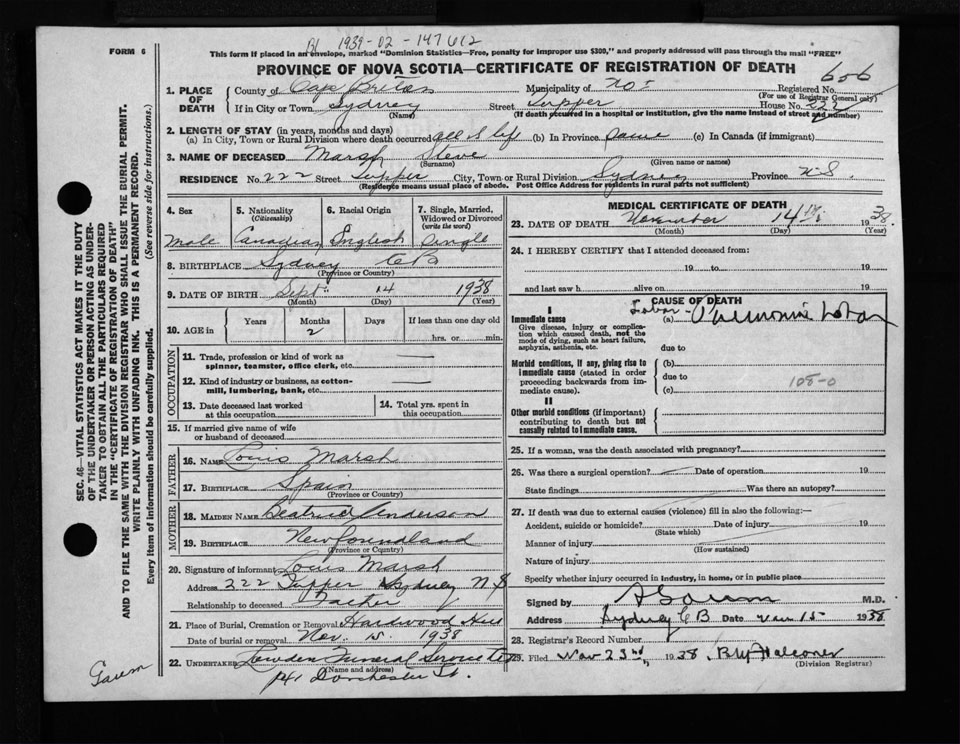 FORM 6
1939-02-147612
This form if placed in an envelope, marked "Dominion Statistics—Free, penalty for improper use $300," and properly addressed will pass through the mail "FREE"
PROVINCE OF NOVA SCOTIA—CERTIFICATE OF REGISTRATION OF DEATH
606
1. PLACE OF DEATH
County of Cape Breton
Municipality of
Registered No.
(For use of Registrar General only)
If in City or Town Sydney Street Tupper House No. 222
(Name) (If death occurred in a hospital or institution, give the name instead of street and number)
2. LENGTH OF STAY (in years, months and days)
(a) In City, Town or Rural Division where death occurred all s life (b) In Province same (c) In Canada (if immigrant)
3. NAME OF DECEASED Marsh Steve
(Surname) (Given name or names)
RESIDENCE No. 222 Street Tupper City, Town or Rural Division Sydney Province N S.
(Residence means usual place of abode. Post Office Address for residents in rural parts not sufficient)
4. Sex
Male
5. Nationality (Citizenship)
Canadian
6. Racial Origin
English
7. Single, Married, Widowed or Divorced (write the word)
Single
8. BIRTHPLACE Sydney C B
(Province or Country)
9. DATE OF BIRTH Sept. 14 1938
(Month) (Day) (Year)
10. AGE in
Years Months Days If less than one day old
2
hrs. or min.
OCCUPATION
11. Trade, profession or kind of work as spinner, teamster, office clerk, etc.
12. Kind of industry or business, as cotton-mill, lumbering, bank, etc.
13. Date deceased last worked at this occupation
14. Total yrs. spent in this occupation
15. If married give name of wife or husband of deceased
FATHER
16. NAME Louis Marsh
17. BIRTHPLACE Spain
(Province or Country)
MOTHER
18. MAIDEN NAME Beatrice Anderson
19. BIRTHPLACE Newfoundland
(Province or Country)
20. Signature of informant Louis Marsh
Address 222 Tupper Sydney N S
Relationship to deceased Father
21. Place of Burial, Cremation or Removal Hardwood Hill
Date of burial or removal Nov. 15. 1938
22. UNDERTAKER Lowden Funeral Service Ltd
(Name and address)
141 Dorchester St.
MEDICAL CERTIFICATE OF DEATH
23. DATE OF DEATH November 14th 1938.
(Month) (Day) (Year)
24. I HEREBY CERTIFY that I attended deceased from:
19 to 19
and last saw h alive on 19
CAUSE OF DEATH
I
Immediate cause
Give disease, injury or complication which caused death, not the mode of dying, such as heart failure, asphyxia, asthenia, etc.
Lobar-
(a) Pneumonia Lobar
due to
Morbid conditions, if any, giving rise to immediate cause (stated in order proceeding backwards from immediate cause).
(b)
due to
(c)
108-0
II
Other morbid conditions (if important) contributing to death but not causally related to immediate cause.
25. If a woman, was the death associated with pregnancy?
26. Was there a surgical operation? Date of operation 19
State findings Was there an autopsy?
27. If death was due to external causes (violence) fill in also the following:—
Accident, suicide or homicide? Date of injury 19
(State which)
Manner of injury
(How sustained)
Nature of injury
Specify whether injury occurred in industry, in home, or in public place
Signed by M.D.
Address Sydney C B Date Nov 15 1938
28. Registrar's Record Number
29. Filed Nov 23rd, 1938. Falconer
(Division Registrar)
SEC. 46—VITAL STATISTICS ACT MAKES IT THE DUTY OF THE UNDERTAKER OR PERSON ACTING AS UNDERTAKER TO OBTAIN ALL THE PARTICULARS REQUIRED IN THE "CERTIFICATE OF REGISTRATION OF DEATH" AND TO FILE THE SAME WITH THE DIVISION REGISTRAR WHO SHALL ISSUE THE BURIAL PERMIT.
WRITE PLAINLY WITH UNFADING INK. THIS IS A PERMANENT RECORD.
Every item of information should be carefully supplied. (See reverse side for instructions.)